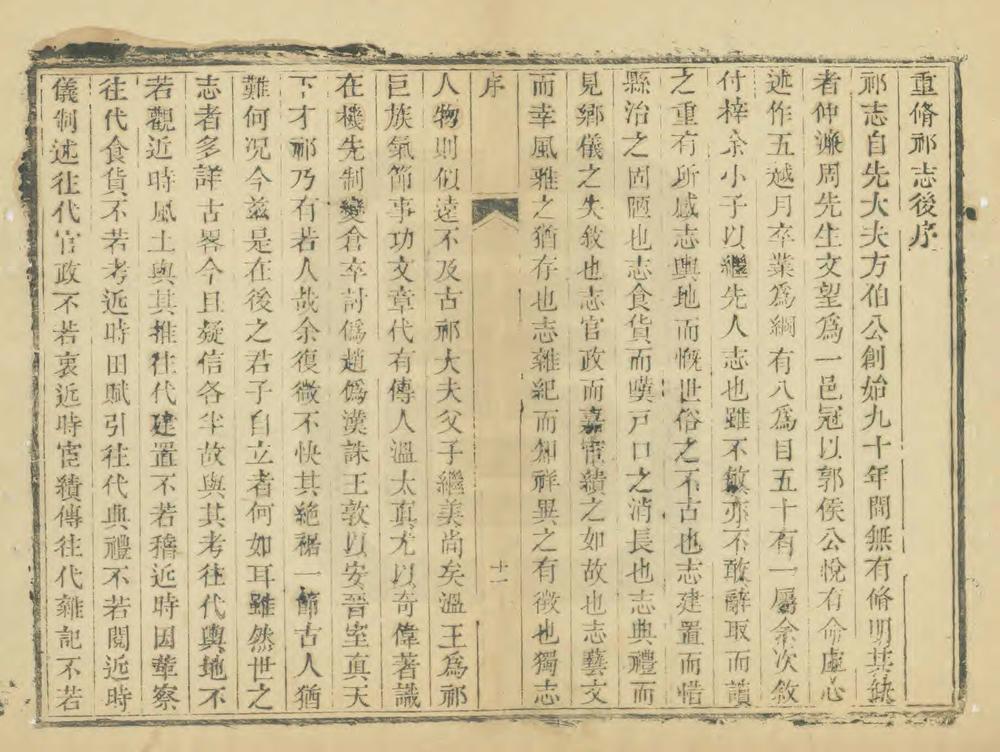 重脩祁志後序
祁志自先大夫方伯公創始九十年間無有脩明其缺
者仲濂周先生文望爲一邑冠以郭侯公悅有命虛心
述作五越月卒業爲綱有八爲目五十有一屬余次敘
付梓余小子以繼先人志也雖不敏亦不敢辭取而讀
之重有所感志輿地而慨世俗之不古也志建置而惜
縣治之固陋也志食貨而嘆戸口之消長也志典禮而
見鄉儀之失敘也志官政而嘉宦績之如故也志藝文
而幸風雅之猶存也志雜紀而知祥異之有徵也獨志
序
十一
人物則似遠不及古祁大夫父子繼美尚矣溫王爲祁
巨族氣節事功文章代有傳人溫太真尤以奇偉著識
在機先制變倉卒討僞趙僞漢誅王敦以安晉室真天
下才祁乃有若人哉余復微不快其絶裾一節古人猶
難何况今兹是在後之君子自立者何如耳雖然世之
志者多詳古畧今且疑信各半故與其考往代輿地不
若觀近時風土與其推往代建置不若稽近時因葺察
往代食貨不若考近時田賦引往代典禮不若閱近時
儀制述往代官政不若裒近時宦績傳往代雜記不若